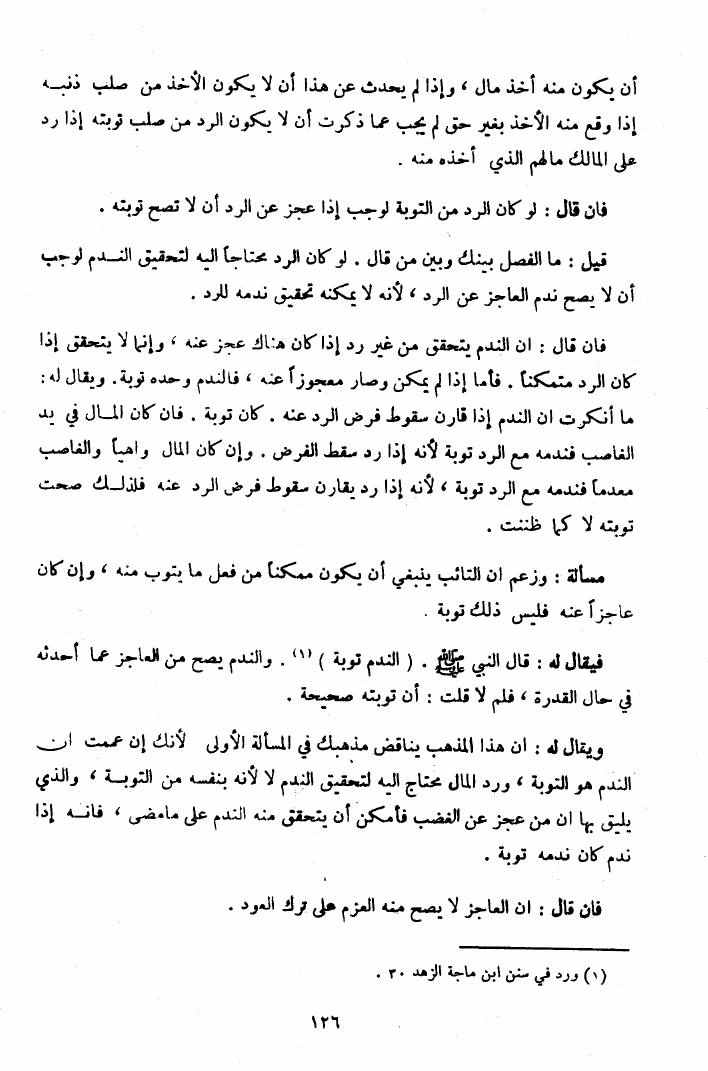 أن يكون منه أخذ مال ، وإذا لم يحدث عن هذا أن لا يكون الأخذ من صلب ذنبــه
إذا وقع منه الأخذ بغير حق لم يجب عما ذكرت أن لا يكون الرد من صلب توبته إذا رد
على المالك مالهم الذي أخذه منه .
فان قال : لو كان الرد من التوبة لوجب إذا عجز عن الرد أن لا تصح توبته .
قيل : ما الفصل بينك وبين من قال . لو كان الرد محتاجاً اليه لتحقيق النــدم لوجب
أن لا يصح ندم العاجز عن الرد ، لأنه لا يمكنه تحقيق ندمه للرد .
فان قال : ان الندم يتحقق من غير رد إذا كان هناك عجز عنه ، وإنما لا يتحقق إذا
كان الرد متمكناً . فأما إذا لم يمكن وصار معجوزاً عنه ، فالندم وحده توبة. ويقال له:
ما أنكرت ان الندم إذا قارن سقوط فرض الرد عنه . كان توبة . فان كان المــال في يد
الغاصب فندمه مع الرد توبة لأنه إذا رد سقط الفرض . وإن كان المال واهياً والغاصب
معدماً فندمه مع الرد توبة ، لأنه إذا رد يقارن سقوط فرض الرد عنه فلذلــك صحت
توبته لا كما ظننت .
مسألة : وزعم ان التائب ينبغي أن يكون ممكناً من فعل ما يتوب منه ، وإن كان
عاجزاً عنه فليس ذلك توبة .
فيقال له : قال النبي ﷺ . ( الندم توبة ) (١) . والندم يصح من العاجز عما أحدثه
في حال القدرة ، فلم لا قلت : أن توبته صحيحة .
ويقال له : ان هذا المذهب يناقض مذهبك في المسألة الأولى لأنك إن عممت ان
الندم هو التوبة ، ورد المال محتاج اليه لتحقيق الندم لا لأنه بنفسه من التوبــة ، والذي
يليق بها ان من عجز عن الغضب فأمكن أن يتحقق منه الندم على مامضى ، فانــه إذا
ندم كان ندمه توبة .
فان قال : ان العاجز لا يصح منه العزم على ترك العود .
(١) ورد في سنن ابن ماجة الزهد ٣٠ .
١٢٦